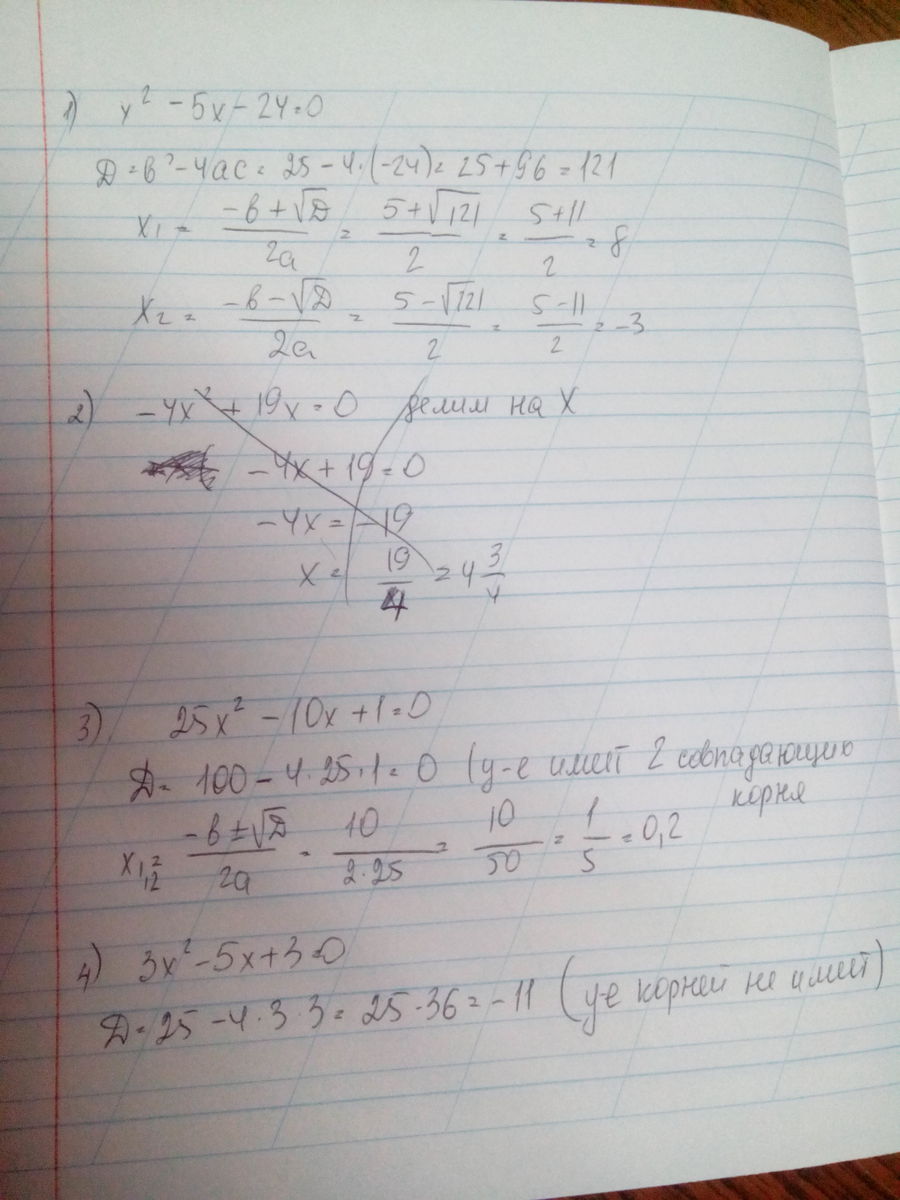 1) x² - 5x - 24 = 0
D = b² - 4ac = 25 - 4·(-24) = 25 + 96 = 121
x₁ = (-b + √D)/2a = (5 + √121)/2 = (5 + 11)/2 = 8
x₂ = (-b - √D)/2a = (5 - √121)/2 = (5 - 11)/2 = -3
2) -4x² + 19x = 0 делим на x
-4x + 19 = 0
-4x = -19
x = 19/4 = 4 3/4
3) 25x² - 10x + 1 = 0
D = 100 - 4·25·1 = 0 (у-е имеет 2 совпадающию
корня
x₁,₂ (-b ± √D)/2a = 10/(2·25) = 10/50 = 1/5 = 0,2
4) 3x² - 5x + 3 = 0
D = 25 - 4·3·3 = 25 - 36 = -11 (у-е корней не имеет)